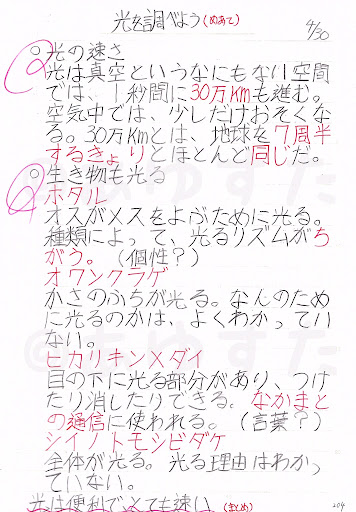 光を調べよう(めあて) 4/30
○光の速さ
光は真空というなにもない空間
では、1秒間に30万kmも進む。
空気中では、少しだけおそくな
る。30万kmとは、地球を7周半
するきょりとほとんど同じだ。
○生き物も光る
ホタル
オスがメスをよぶために光る。
種類によって、光るリズムがち
がう。(個性?)
オワンクラゲ
かさのふちが光る。なんのため
に光るのかは、よくわかってい
ない。
ヒカリキンメダイ
目の下に光る部分があり、つけ
たり消したりできる。なかまと
の通信に使われる。(言葉?)
シイノトモシビダケ
全体が光る。光る理由はわかっ
ていない。
光は便利でとても速い(まとめ) 204